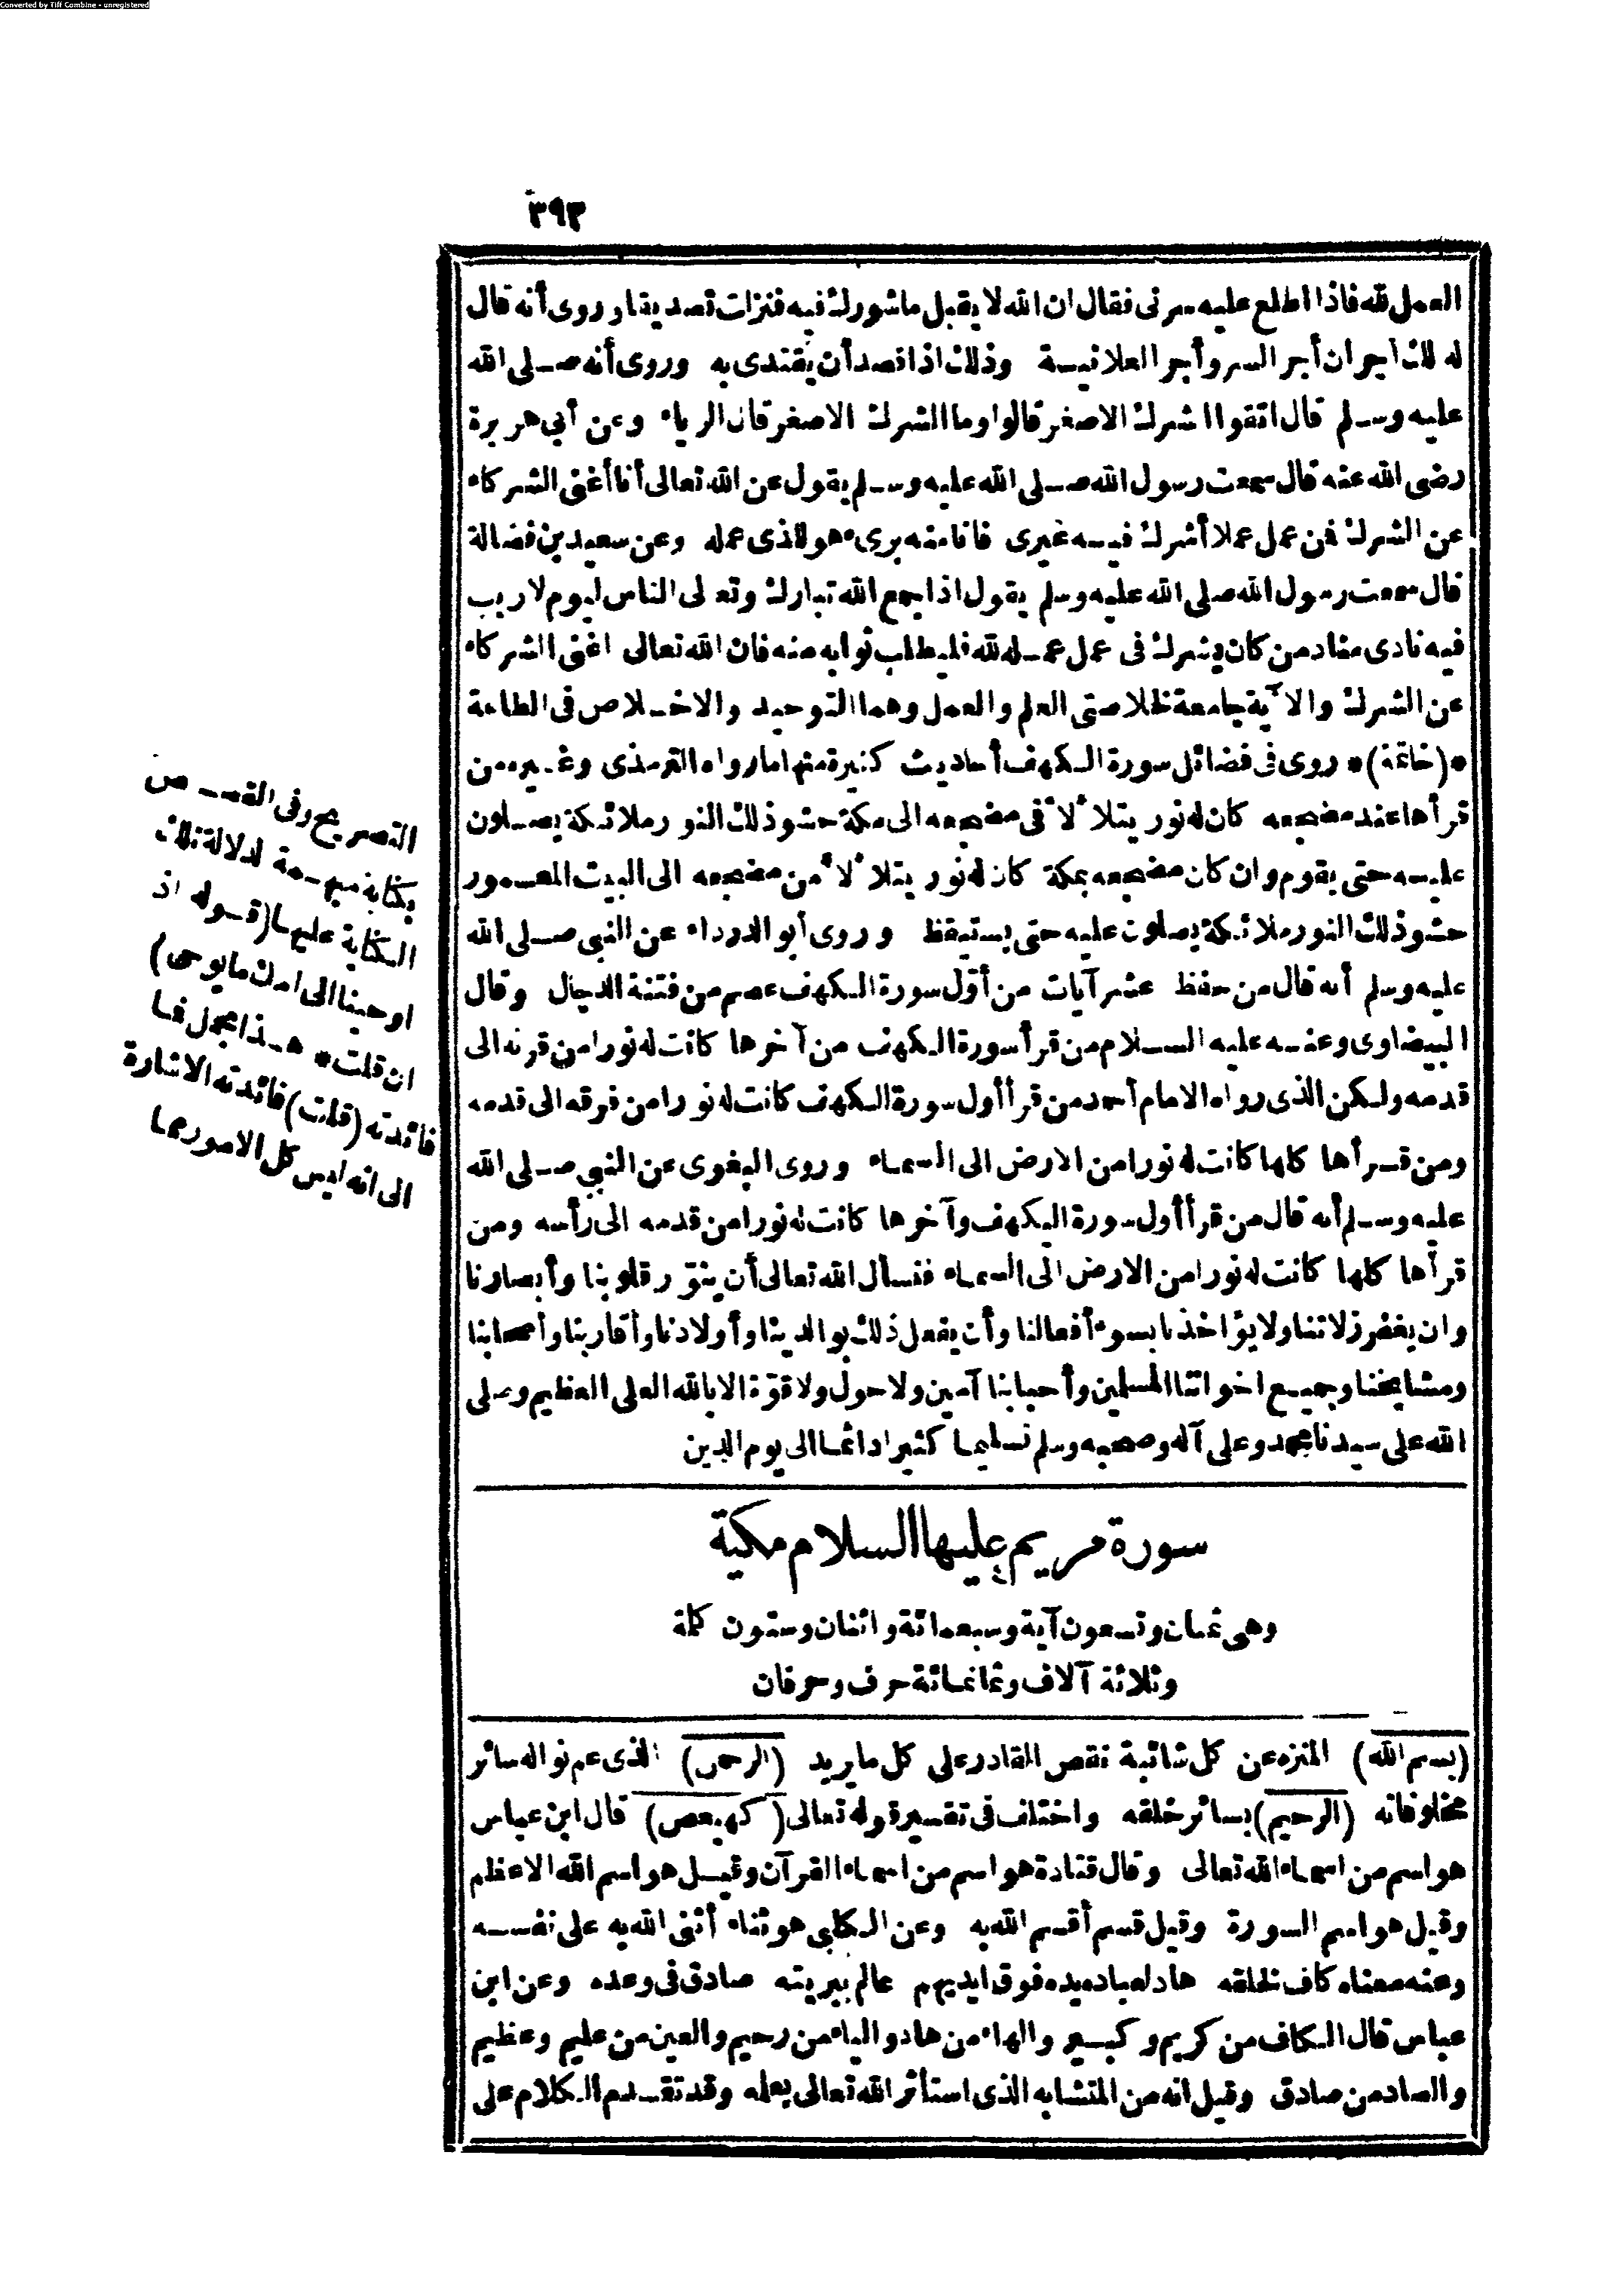 Converted by Tiff Combine - unregistered
٣٩٣
العمل لله فاذا اطلع عليه سرني فقال ان الله لا يقبل ما شورك فيه فنزلت تصديقا وروى أنه قال
له لك أجران أجر السر وأجر العلانية وذلك اذا قصد أن يقتدى به وروى أنه صلى الله
عليه وسلم قال اتقوا الشرك الاصغر قالوا وما الشرك الاصغر قال الرياء وعن أبى هريرة
رضى الله عنه قال سمعت رسول الله صلى الله عليه وسلم يقول عن الله تعالى أنا أغنى الشركاء
عن الشرك فمن عمل عملا أشرك فيه غيرى فانا منه برىء هو للذى عمله وعن سعيد بن فضالة
قال سمعت رسول الله صلى الله عليه وسلم يقول اذا جمع الله تبارك وتعالى الناس ليوم لا ريب
فيه نادى مناد من كان يشرك فى عمل عمله لله فليطلب ثوابه منه فان الله تعالى اغنى الشركاء
عن الشرك والآية جامعة لخلاصتى العلم والعمل وهما التوحيد والاخلاص فى الطاعة
*(خاتمة)* روى فى فضائل سورة الكهف أحاديث كثيرة منها ما رواه الترمذى وغيره من
قرأها عند مضجعه كان له نور يتلألأ فى مضجعه الى مكة حشو ذلك النور ملائكة يصلون
عليه حتى يقوم وان كان مضجعه بمكة كان له نور يتلألأ من مضجعه الى البيت المعمور
حشو ذلك النور ملائكة يصلون عليه حتى يستيقظ وروى أبو الدرداء عن النبى صلى الله
عليه وسلم أنه قال من حفظ عشر آيات من أوّل سورة الكهف عصم من فتنة الدجال وقال
البيضاوى وعنه عليه السلام من قرأ سورة الكهف من آخرها كانت له نورا من قرنه الى
قدمه ولكن الذى رواه الامام أحمد من قرأ أول سورة الكهف كانت له نورا من فرقه الى قدمه
ومن قرأها كلها كانت له نورا من الارض الى السماء وروى البغوى عن النبى صلى الله
عليه وسلم أنه قال من قرأ أول سورة الكهف وآخرها كانت له نورا من قدمه الى رأسه ومن
قرأها كلها كانت له نورا من الارض الى السماء فنسأل الله تعالى أن ينوّر قلوبنا وأبصارنا
وان يغفر زلاتنا ولا يؤاخذنا بسوء أفعالنا وأن يفعل ذلك بوالدينا وأولادنا وأقاربنا وأصحابنا
ومشايخنا وجميع اخواتنا المسلمين وأحبابنا آمين ولا حول ولا قوّة الا بالله العلى العظيم وصلى
الله على سيدنا محمد وعلى آله وصحبه وسلم تسليما كثيرا دائما الى يوم الدين
سورة مريم عليها السلام مكية
وهى ثمان وتسعون آية وسبعمائة واثنان وستون كلمة
وثلاثة آلاف وثمانمائة حرف وحرفان
(بسم الله) المنزه عن كل شائبة نقص القادر على كل ما يريد (الرحمن) الذى عم نواله سائر
مخلوقاته (الرحيم) بسائر خلقه واختلف فى تفسير قوله تعالى (كهيعص) قال ابن عباس
هو اسم من اسماء الله تعالى وقال قتادة هو اسم من اسماء القرآن وقيل هو اسم الله الاعظم
وقيل هو اسم السورة وقيل قسم أقسم الله به وعن الكلبى هو ثناء أثنى الله به على نفسه
وعنه معناه كاف لخلقه هاد لعباده يده فوق ايديهم عالم ببريته صادق فى وعده وعن ابن
عباس قال الكاف من كريم وكبير والهاء من هاد والياء من رحيم والعين من عليم وعظيم
والصاد من صادق وقيل انه من المتشابه الذى استأثر الله تعالى بعلمه وقد تقدم الكلام على
التصريح وفى القصص
بكناية مبهمة لدلالة تلك
الكناية عليها (قوله اذ
اوحينا الى امك ما يوحى)
ان قلت* هذا مجمل فما
فائدته (قلت) فائدته الاشارة
الى انه ليس كل الامور مما